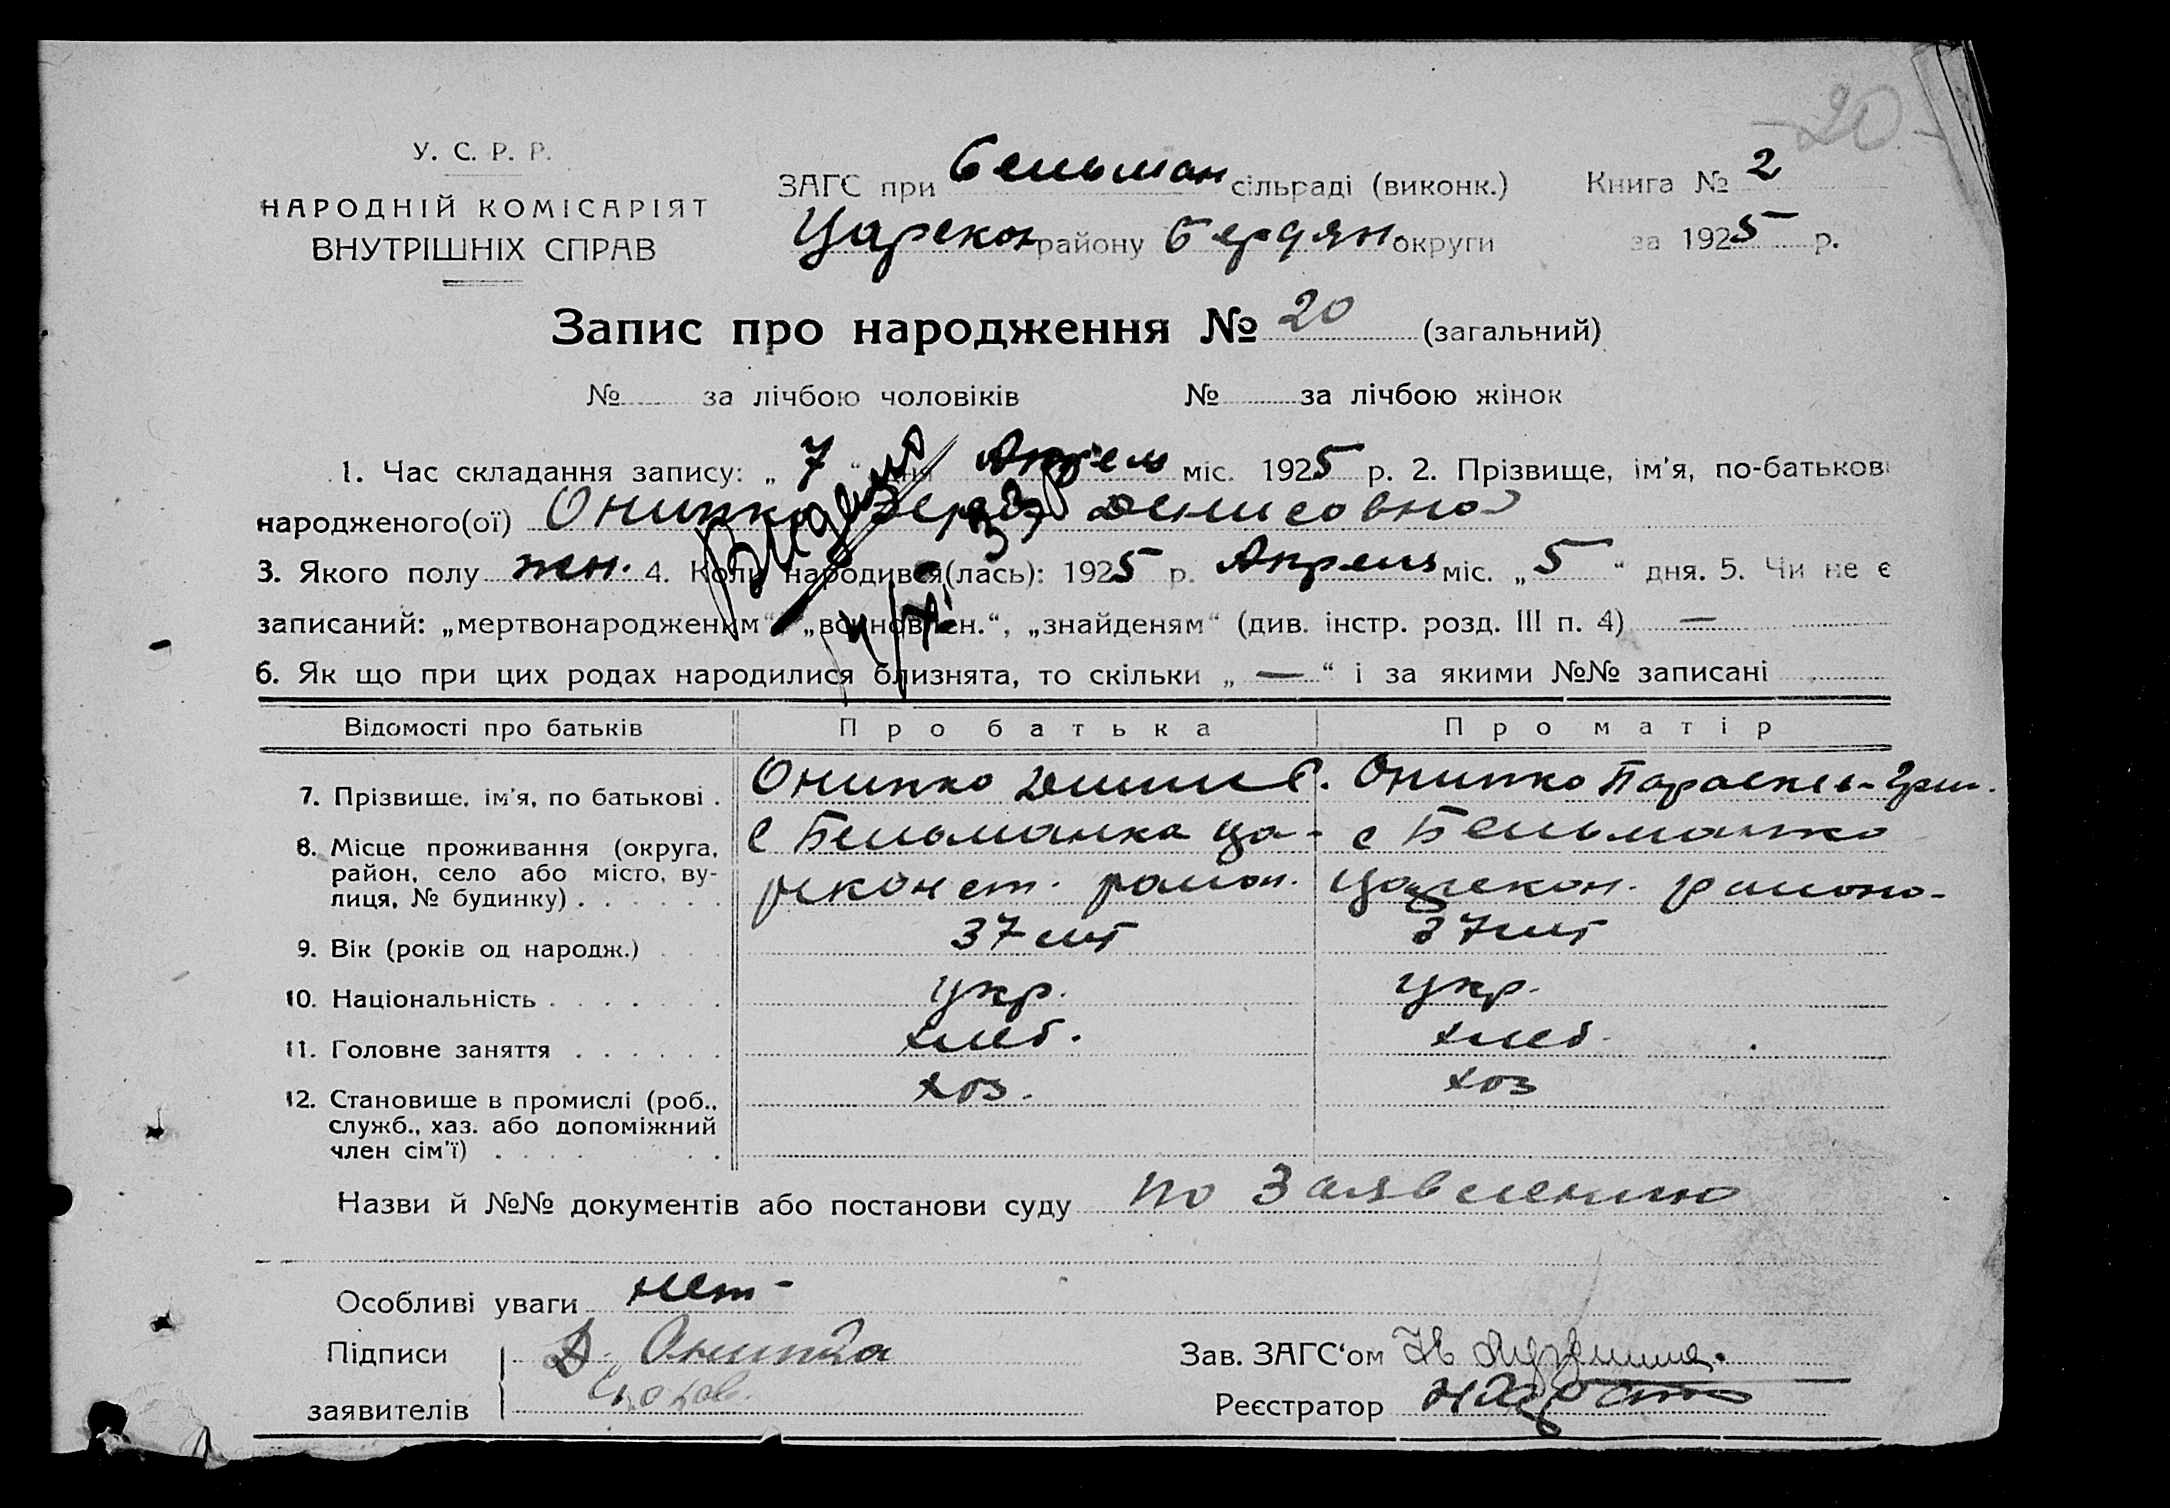 20
У. С. Р. Р.
НАРОДНІЙ КОМІСАРІЯТ
ВНУТРІШНІХ СПРАВ
ЗАГС при Бельман сільраді (виконк.) Книга № 2
Царекон району Бердян. округи за 1925 р.
Запис про народження № 20 (загальний)
№ за лічбою чоловіків № за лічбою жінок
1. Час складання запису: „ 7 “ дня Апрель міс. 1925 р. 2. Прізвище, ім'я, по-батькові
народженого(ої) Онипко Денисовна
3. Якого полу жен. 4. Коли народився(лась): 1925 р. Апреля міс. „ 5 “ дня. 5. Чи не є
записаний: „мертвонародженим“, „всиновлен.“, „знайденям“ (див. інстр. розд. III п. 4) —
6. Як що при цих родах народилися близнята, то скільки „ — “ і за якими №№ записані
Видано
Відомості про батьків Про батька Про матір
7. Прізвище, ім'я, по батькові . Онипко Денис Онипко Параскев. Гри.
8. Місце проживання (округа, район, село або місто, вулиця, № будинку) . . . . . . с Бельманка Цареконст. район. с Бельманка Царекон. района
9. Вік (років од народж.) . . . 37 лет 37 лет
10. Національність . . . . . . . укр. укр.
11. Головне заняття . . . . . . хлеб. хлеб.
12. Становище в промислі (роб., служб., хаз. або допоміжний член сім'ї) . . . . . . . . хоз. хоз
Назви й №№ документів або постанови суду по Заявлению
Особливі уваги нет
Підписи Д. Онипка Зав. ЗАГС‘ом
заявителів Реєстратор